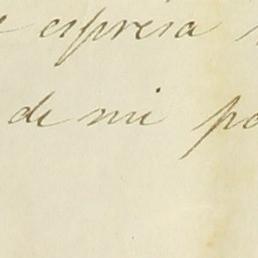 espresa
de mi